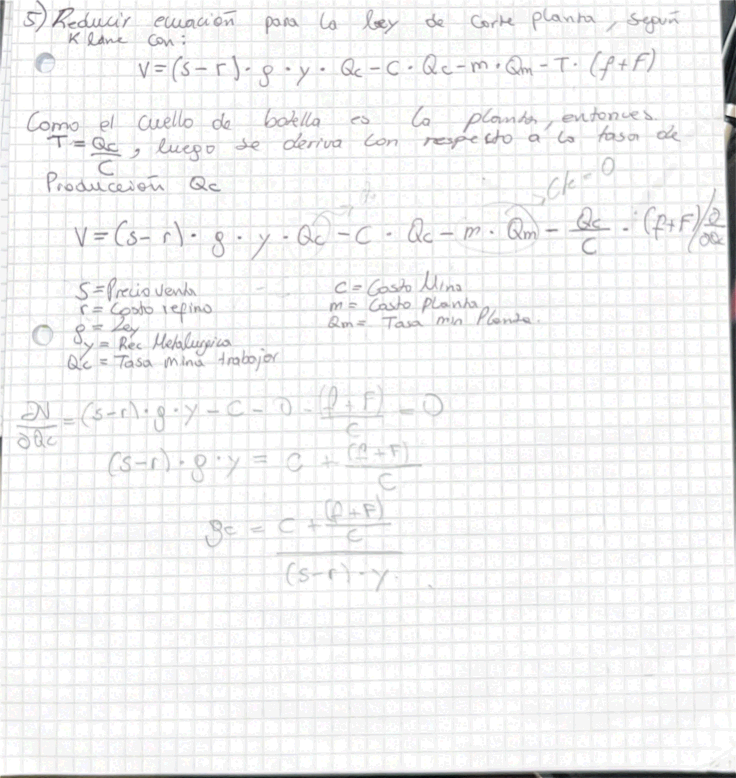 5) Reducir ecuación para la ley de corte planta, según
K lane con:
V=(s-r)·g·y·Qc-C·Qc-m·Qm-T·(f+F)
Como el cuello de botella es la planta, entonces
T=Qc/C, luego se deriva con respecto a la tasa de
Producción Qc
Ck=0
V=(s-r)·g·y·Qc-C·Qc-m·Qm-Qc/C·(f+F)/∂/∂Qc
S=Precio venta
r=Costo refino
g=Ley
y=Rec Metalurgica
Qc=Tasa mina trabajar
C=Costo Mina
m=Costo planta
Qm=Tasa min Planta.
∂V/∂Qc=(s-r)·g·y-C-0-(f+F)/C=0
(s-r)·g·y=C+(f+F)/C
gc=(C+(f+F)/C)/((s-r)-y.)